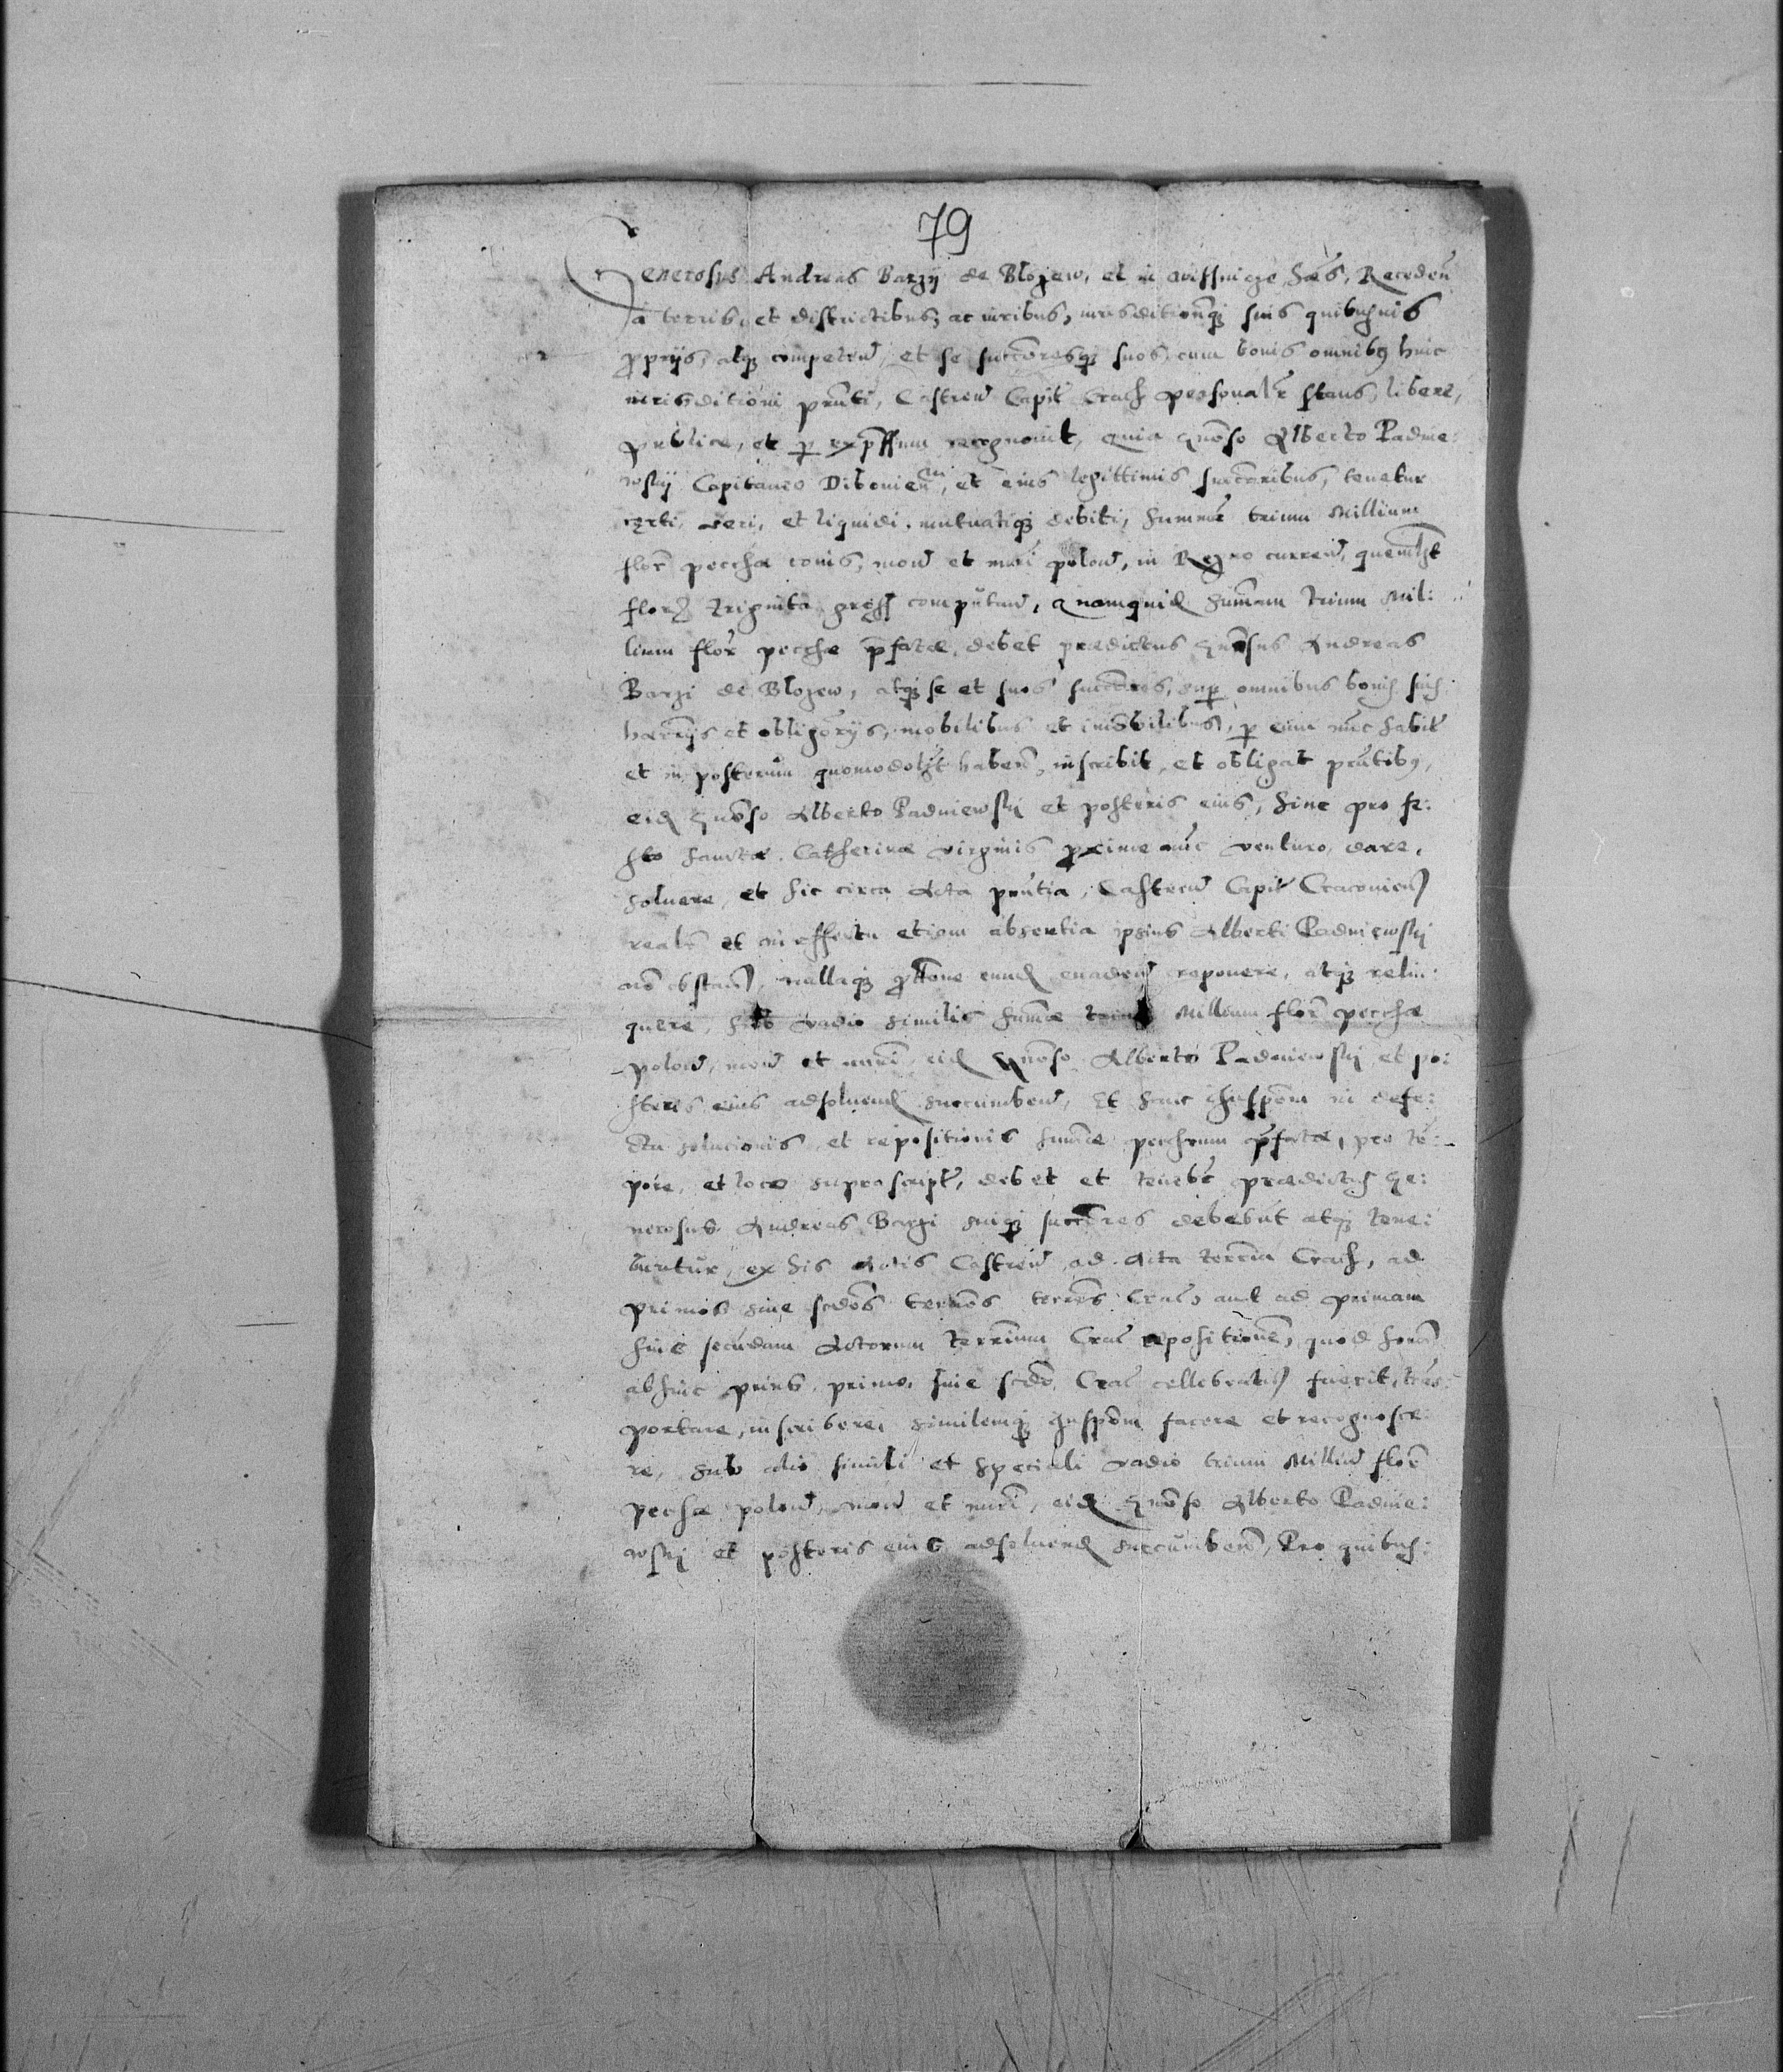 79
Generosus Andreas Barzÿ de Blozew, et in Wissnicze haes, Receden
a terris, et districtibus, ac iuribus, iurisditionq; suis quibusuis
proprÿs, atq; competen, et se succoresq; suos, cum bonis omnibus huic
iurisditioni prnti, Castren Capit Crach personalr stans, libere,
publice, et per expssum recognouit, quia Gnoso Alberto Padnie:
wskÿ Capitaneo Diboniensi, et eius legittimis succoribus, tenetur
certi, veri, et liquidi, mutuatiq; debiti, summæ trium Millium
flor pecchæ cois, mon et nuri polon, in Regno curren, quemlzt
flor triginta gross computan, Quamquid summam trium Mil:
lium flor pecchæ pfatæ, debet prædictus Gnosus Andreas
Barzi de Blozew, atq; se et suos succores, sup omnibus bonis suis
haerrÿs et obligorÿs, mobilibus et imobilibus, p eum nuc habit
et in posterum quomodolzt haben, inscribit, et obligat prntibus,
eid Gnoso Alberto Padniewskÿ et posteris eius, hinc pro fe:
sto sanctæ Catherinæ virginis proxime nuc venturo, dare,
soluere, et hic circa Acta prntia, Castren Capit Cracouien
realr et in effectu etiam absentia ipsius Alberti Padniewskÿ
no obstan, nullaq; pttione eund euaden reponere, atq; relin:
quere, sub vadio similis summæ trium Millium flor pecchæ
polon, mon et nuri, eid Gnoso Alberto Padniewskÿ et po:
steris eius adsoluend succumben, Et hanc Inspom in defe:
ctu solucionis et repositionis summæ pecchrum pfatæ, pro te:
pore, et loco suprascript, debet et tenebr prædictus Ge:
nerosus Andreas Barzi suiq; succores debebut atq; tene:
buntur, ex his Actis Castren ad Acta terrum Crach, ad
primos siue scdos termos terres Crac, aut ad primam
siue secudam Actorum terrium Crac repositione, quod horu
abhinc prius, primo, siue scdo Crac cellebratu fuerit, trans:
portare, inscribere, similemq; Inspom facere et recognosce:
re, sub alio simili et speciali vadio trium Milliu flor
pechæ polon, mon et nuri, eid Gnoso Alberto Padnie:
wskÿ et posteris eius adsoluend succumben, Pro quibus: